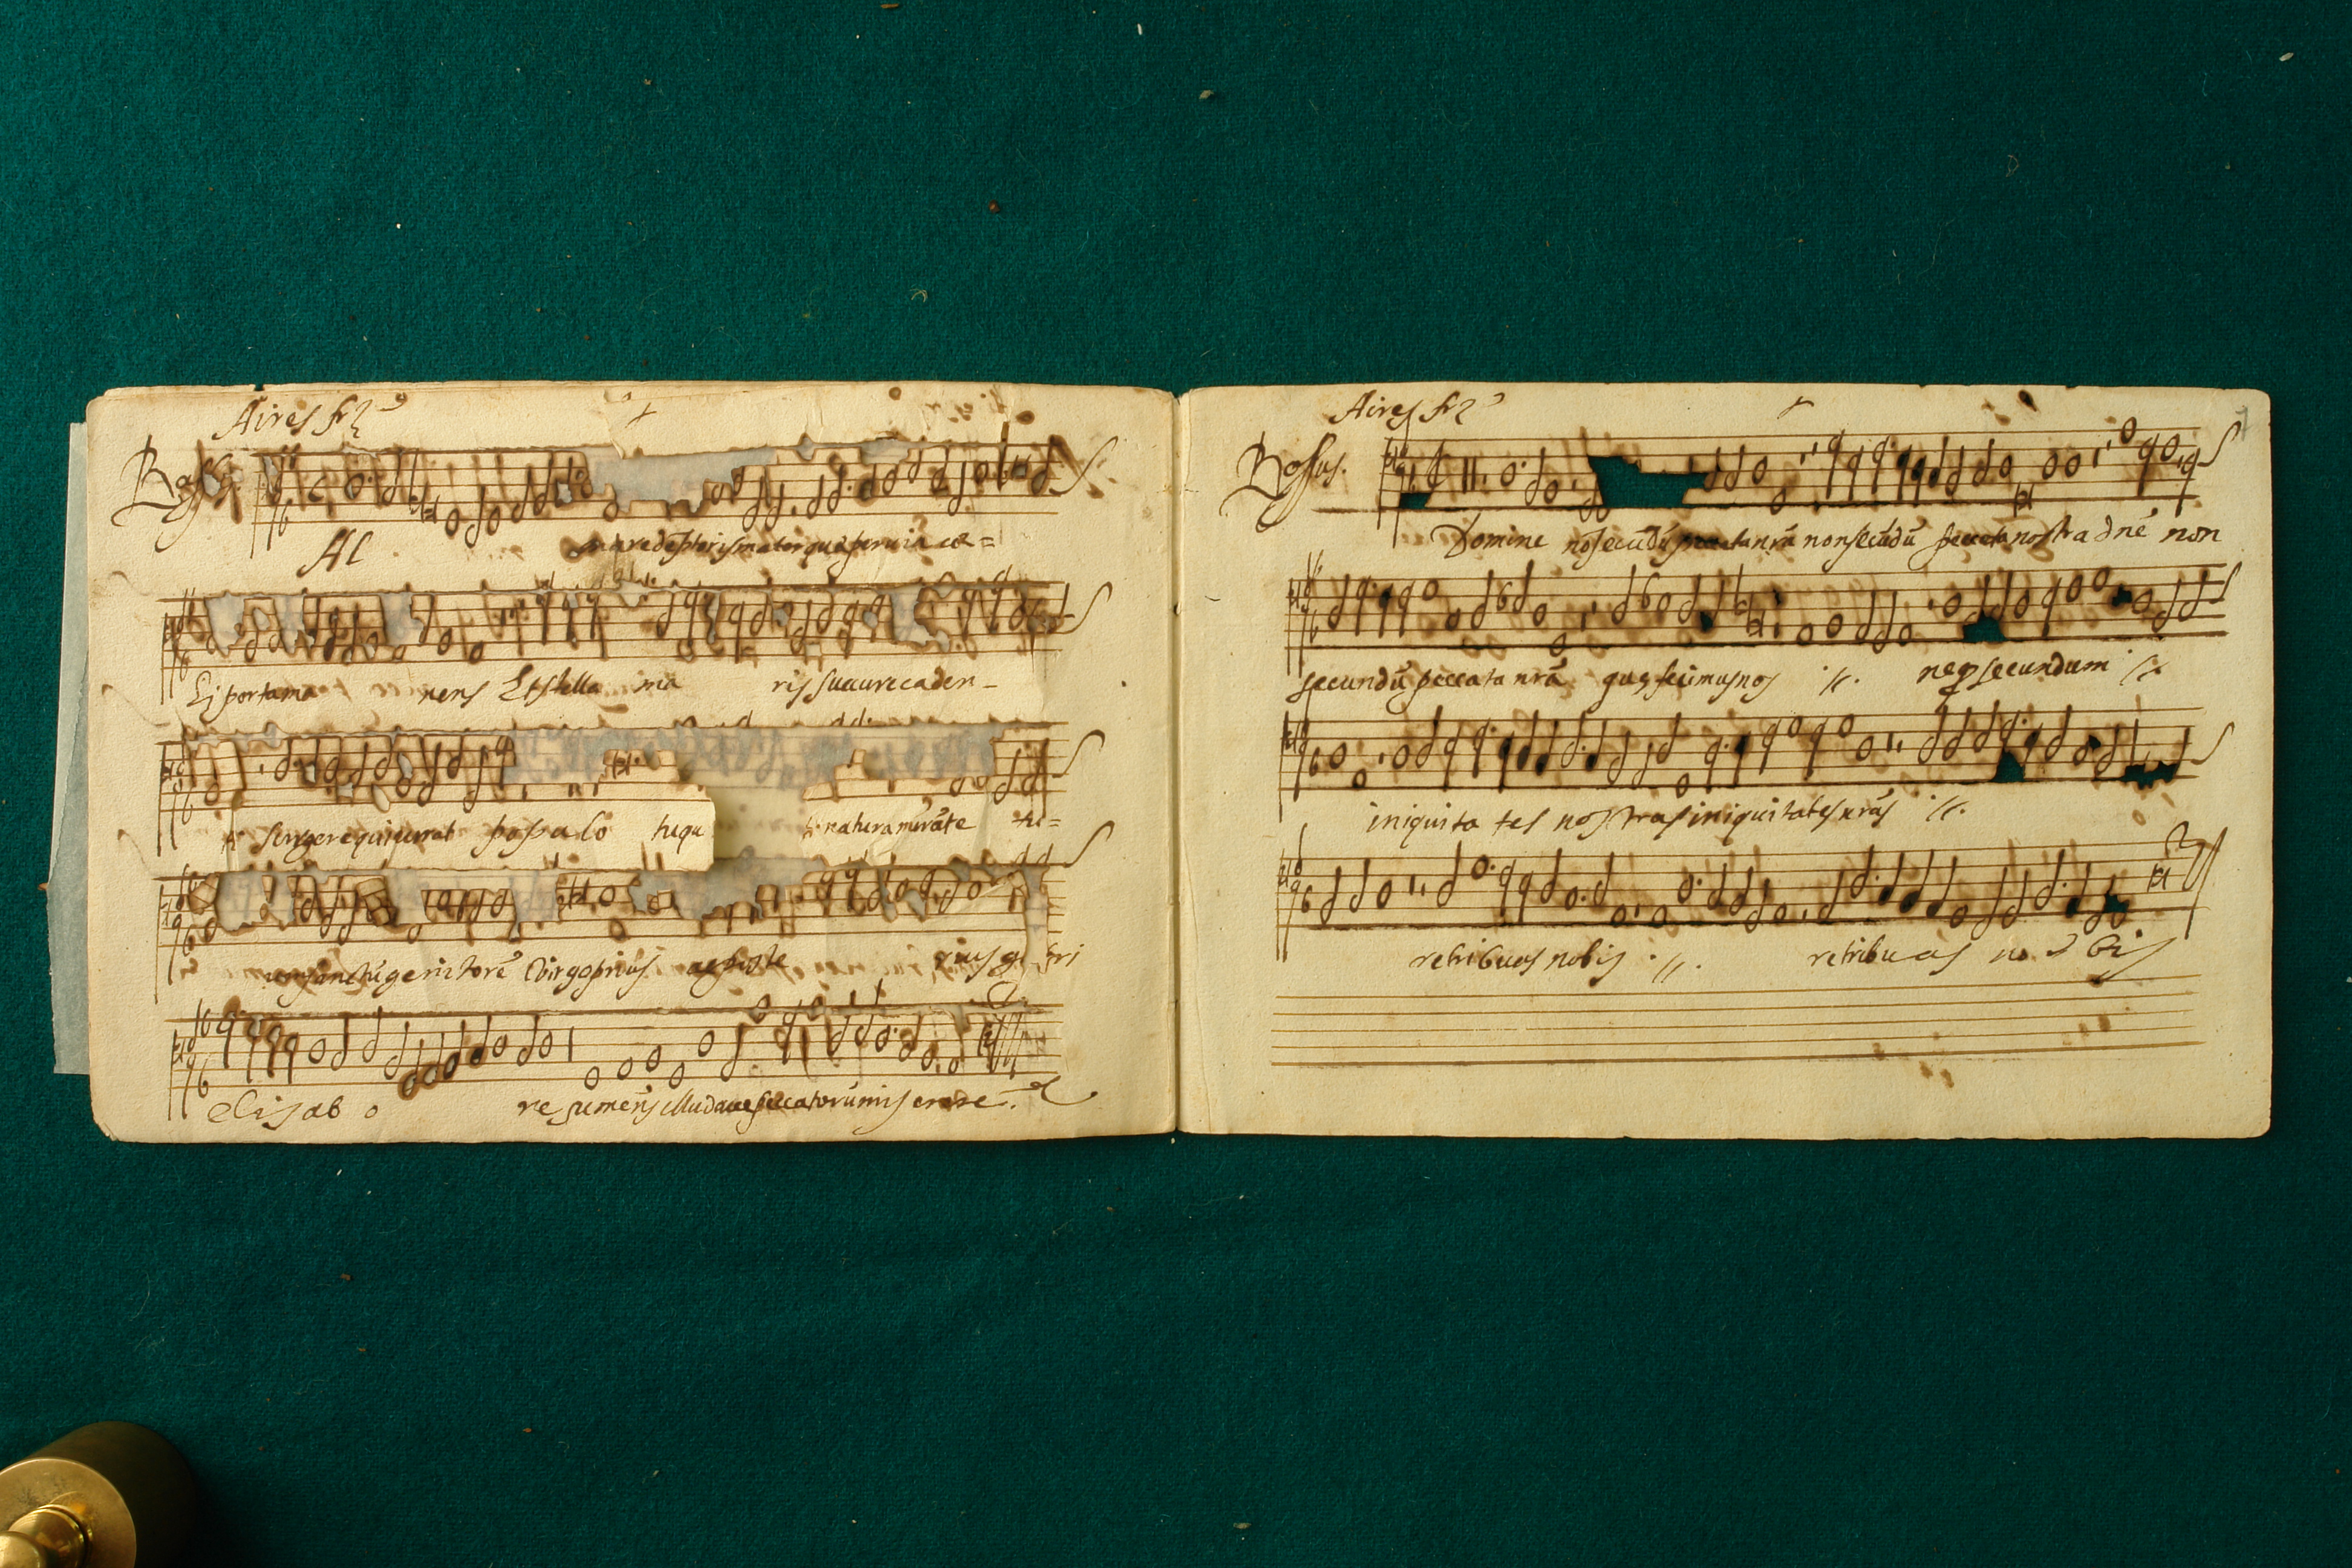 Aires frz
Al
ma redeptoris mater que pervia ce=
li porta ma nens Et stella ma ris sucure caden-
surgere qui curat populo tu qu natura mirãte tu=
um sanctũ genitorẽ Virgo prius ac poste rius ga bri
elis ab o re sumẽns illud ave peccatorũ miserere.
Aires frz
Bassus.
Domine nõ secũdũ peccata nr̃a non secũdũ peccata nostra dñe non
secundũ peccata nr̃a quę fecimus nos :||: neq secundum :||:
iniquita tes nostras iniquitates nr̃as :||:
retribuas nobis :||: retribuas no bis